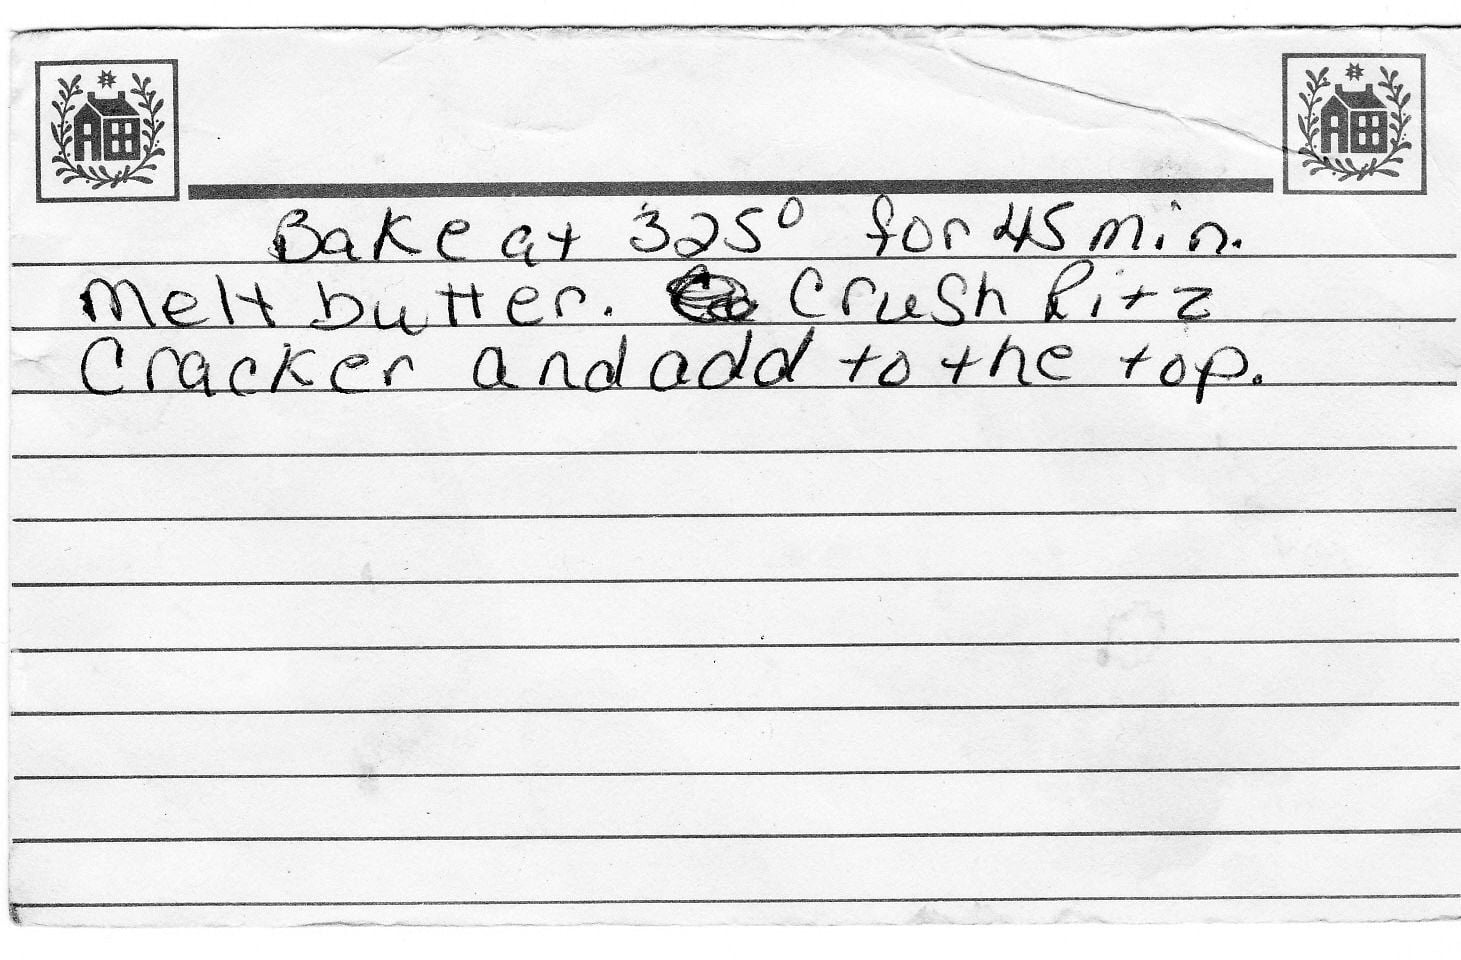 Bake at 325° for 45 min.
Melt butter. Crush Ritz
Cracker and add to the top.